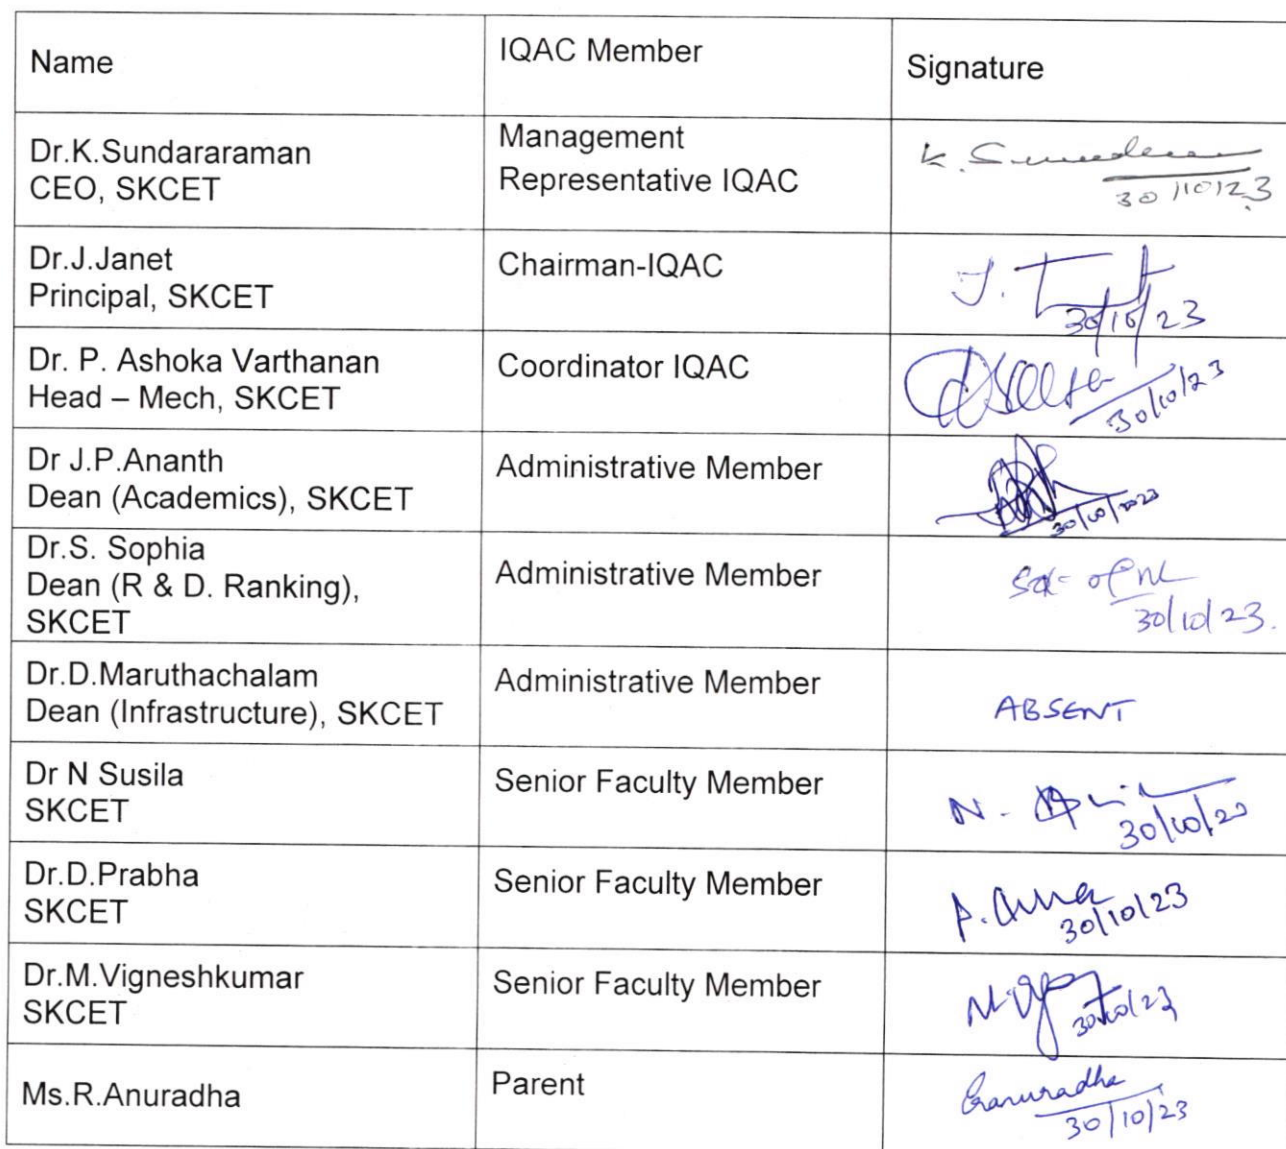 Name
IQAC Member
Signature
Dr.K.Sundararaman
CEO, SKCET
Management
Representative IQAC
K.
30/10/23
Dr.J.Janet
Principal, SKCET
Chairman-IQAC
J.
30/10/23
Dr. P. Ashoka Varthanan
Head – Mech, SKCET
Coordinator IQAC
30/10/23
Dr J.P.Ananth
Dean (Academics), SKCET
Administrative Member
30/10/2023
Dr.S. Sophia
Dean (R & D. Ranking),
SKCET
Administrative Member
30/10/23.
Dr.D.Maruthachalam
Dean (Infrastructure), SKCET
Administrative Member
ABSENT
Dr N Susila
SKCET
Senior Faculty Member
N.
30/10/23
Dr.D.Prabha
SKCET
Senior Faculty Member
30/10/23
Dr.M.Vigneshkumar
SKCET
Senior Faculty Member
30/10/23
Ms.R.Anuradha
Parent
30/10/23